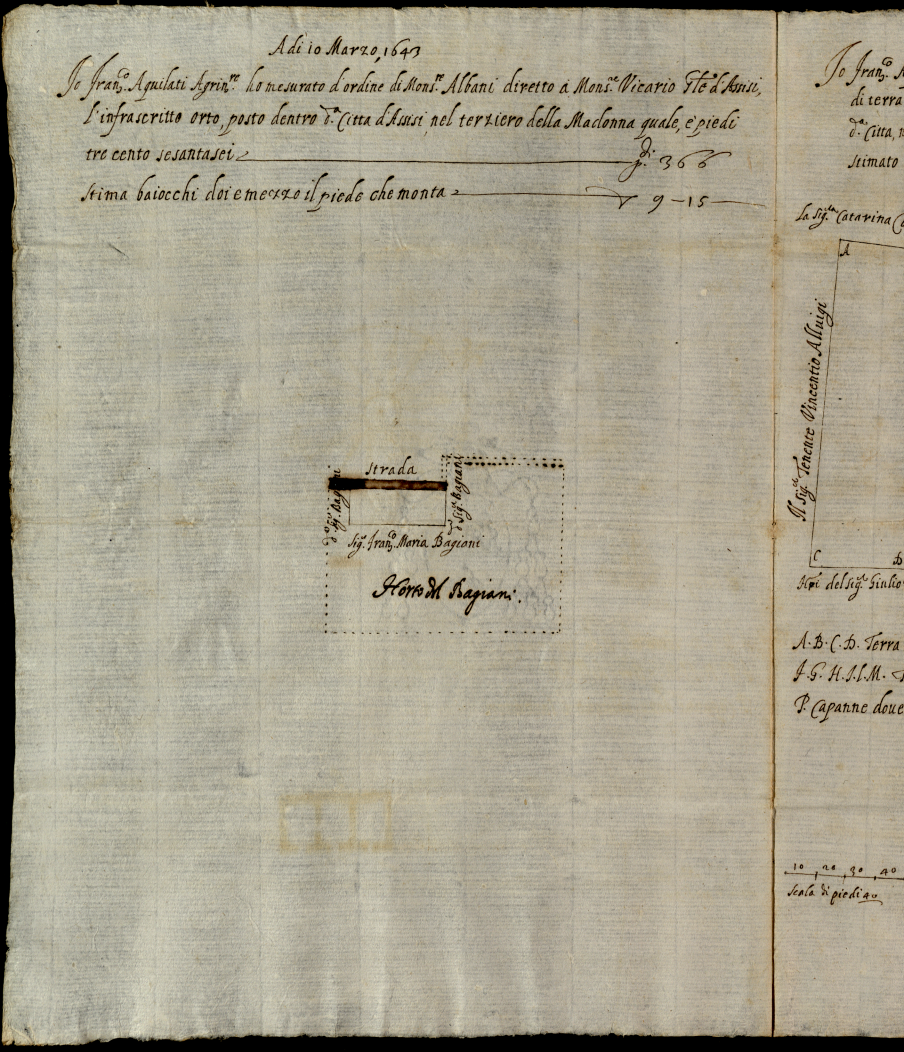 Adi 10 Marzo, 1643
Io Fran.co Aquilati Agrim.re ho mesurato d'ordine di Mons.re Albani diretto à Mons.re Vicario Gñle d'Assisi,
l'infrascritto orto, posto dentro d.a Citta d'Assisi, nel terziero della Madonna quale, è piedi
tre cento sesantasei p.di 366
stima baiocchi doi e mezzo il piede che monta 9-15
strada
d.o Sig.r Bagiani
d.o Sig.r Bagiani
Sig.r Fran.co Maria Bagioni
Horto del Bagiani.
Io Fran.co A
di terra
d.a Citta, n
stimato
La Sig.ra Catarina C
A
Il Sig.r Tenente Vincentio Alluigi
C
D
Hñi del Sig.r Giulio
A.B.C.D. Terra
F.G.H.I.L.M.
P. Capanne doue
10 20 30 40
Scala di piedi 40